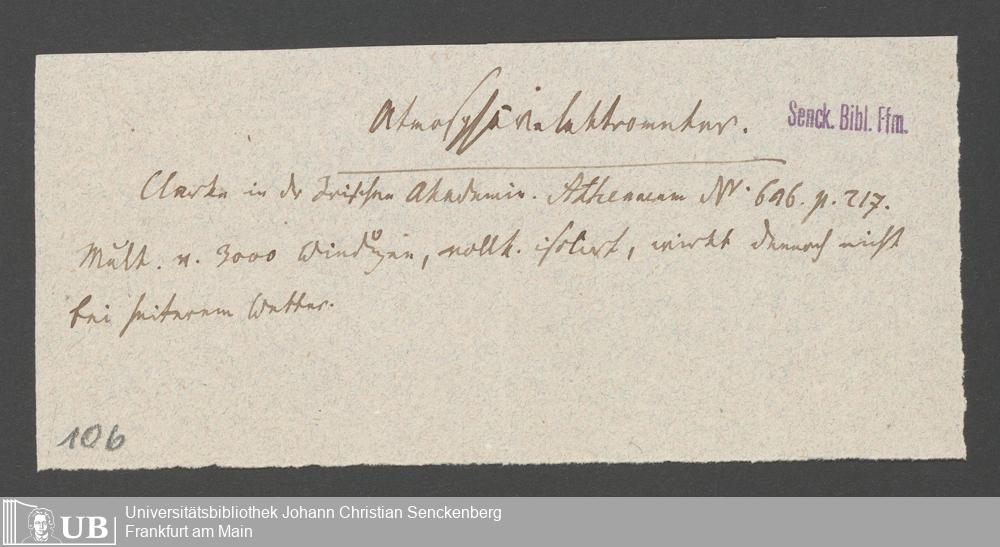 Atmosphärelektrometer.
Senck. Bibl. Ffm.
Clarke in der Irischen Akademie. Athenaeum Nr. 696. p. 217.
Mult. v. 3000 Windungen, vollk. isolirt, wirkt dennoch nicht
bei heiterem Wetter.
106
UB
Universitätsbibliothek Johann Christian Senckenberg
Frankfurt am Main